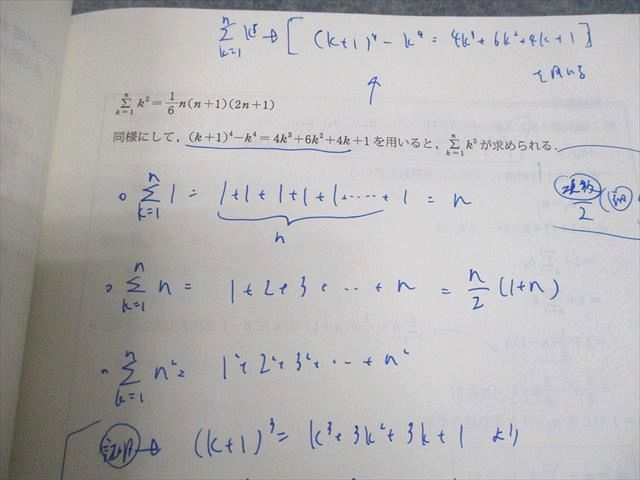 \sum_{k=1}^{n} k^3 → [ (k+1)^4 - k^4 = 4k^3 + 6k^2 + 4k + 1 ]
を用いる
\sum_{k=1}^{n} k^2 = \frac{1}{6} n(n+1)(2n+1)
同様にして，(k+1)^4 - k^4 = 4k^3 + 6k^2 + 4k + 1 を用いると，\sum_{k=1}^{n} k^3 が求められる．
○ \sum_{k=1}^{n} 1 = 1+1+1+1+1+……+1 = n
n
項数
2
○ \sum_{k=1}^{n} n = 1+2+3+…+n = \frac{n}{2}(1+n)
○ \sum_{k=1}^{n} n^2 = 1^2+2^2+3^2+…+n^2
証明 → (k+1)^3 = k^3+3k^2+3k+1 より